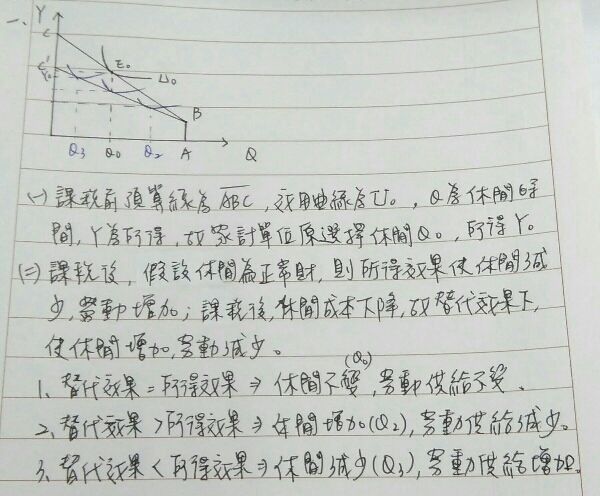 一、
Y
C
E₀
U₀
C'
Y₀
B
Q₃ Q₀ Q₂ A Q
(一) 課稅前預算線為ABC, 效用曲線為U₀, Q為休閒時
間, Y為所得, 故家計單位原選擇休閒Q₀, 所得Y₀
(二) 課稅後, 假設休閒為正常財, 則所得效果使休閒減
少, 勞動增加; 課稅後, 休閒成本下降, 故替代效果下,
使休閒增加, 勞動減少。
1. 替代效果=所得效果⇒休閒不變(Q₀), 勞動供給不變。
2. 替代效果>所得效果⇒休閒增加(Q₂), 勞動供給減少。
3. 替代效果<所得效果⇒休閒減少(Q₃), 勞動供給增加。